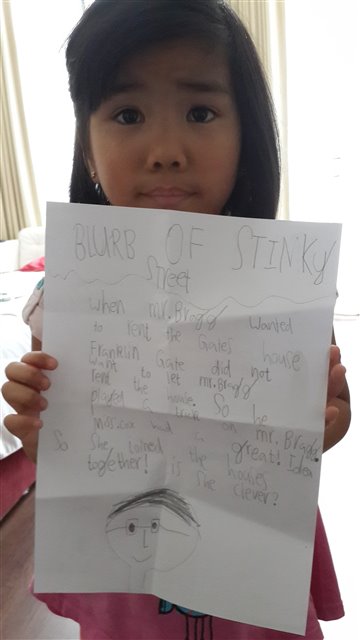 BLURB OF STINKY
Street
When mr. Bragg Wanted
to rent the Gates house
Franklin Gate did not
want to let mr. Bragg
rent the house. So he
played a trick on mr. Bragg.
Mrs. cox had a great! Idea
So she joined the houses
together! is she clever?